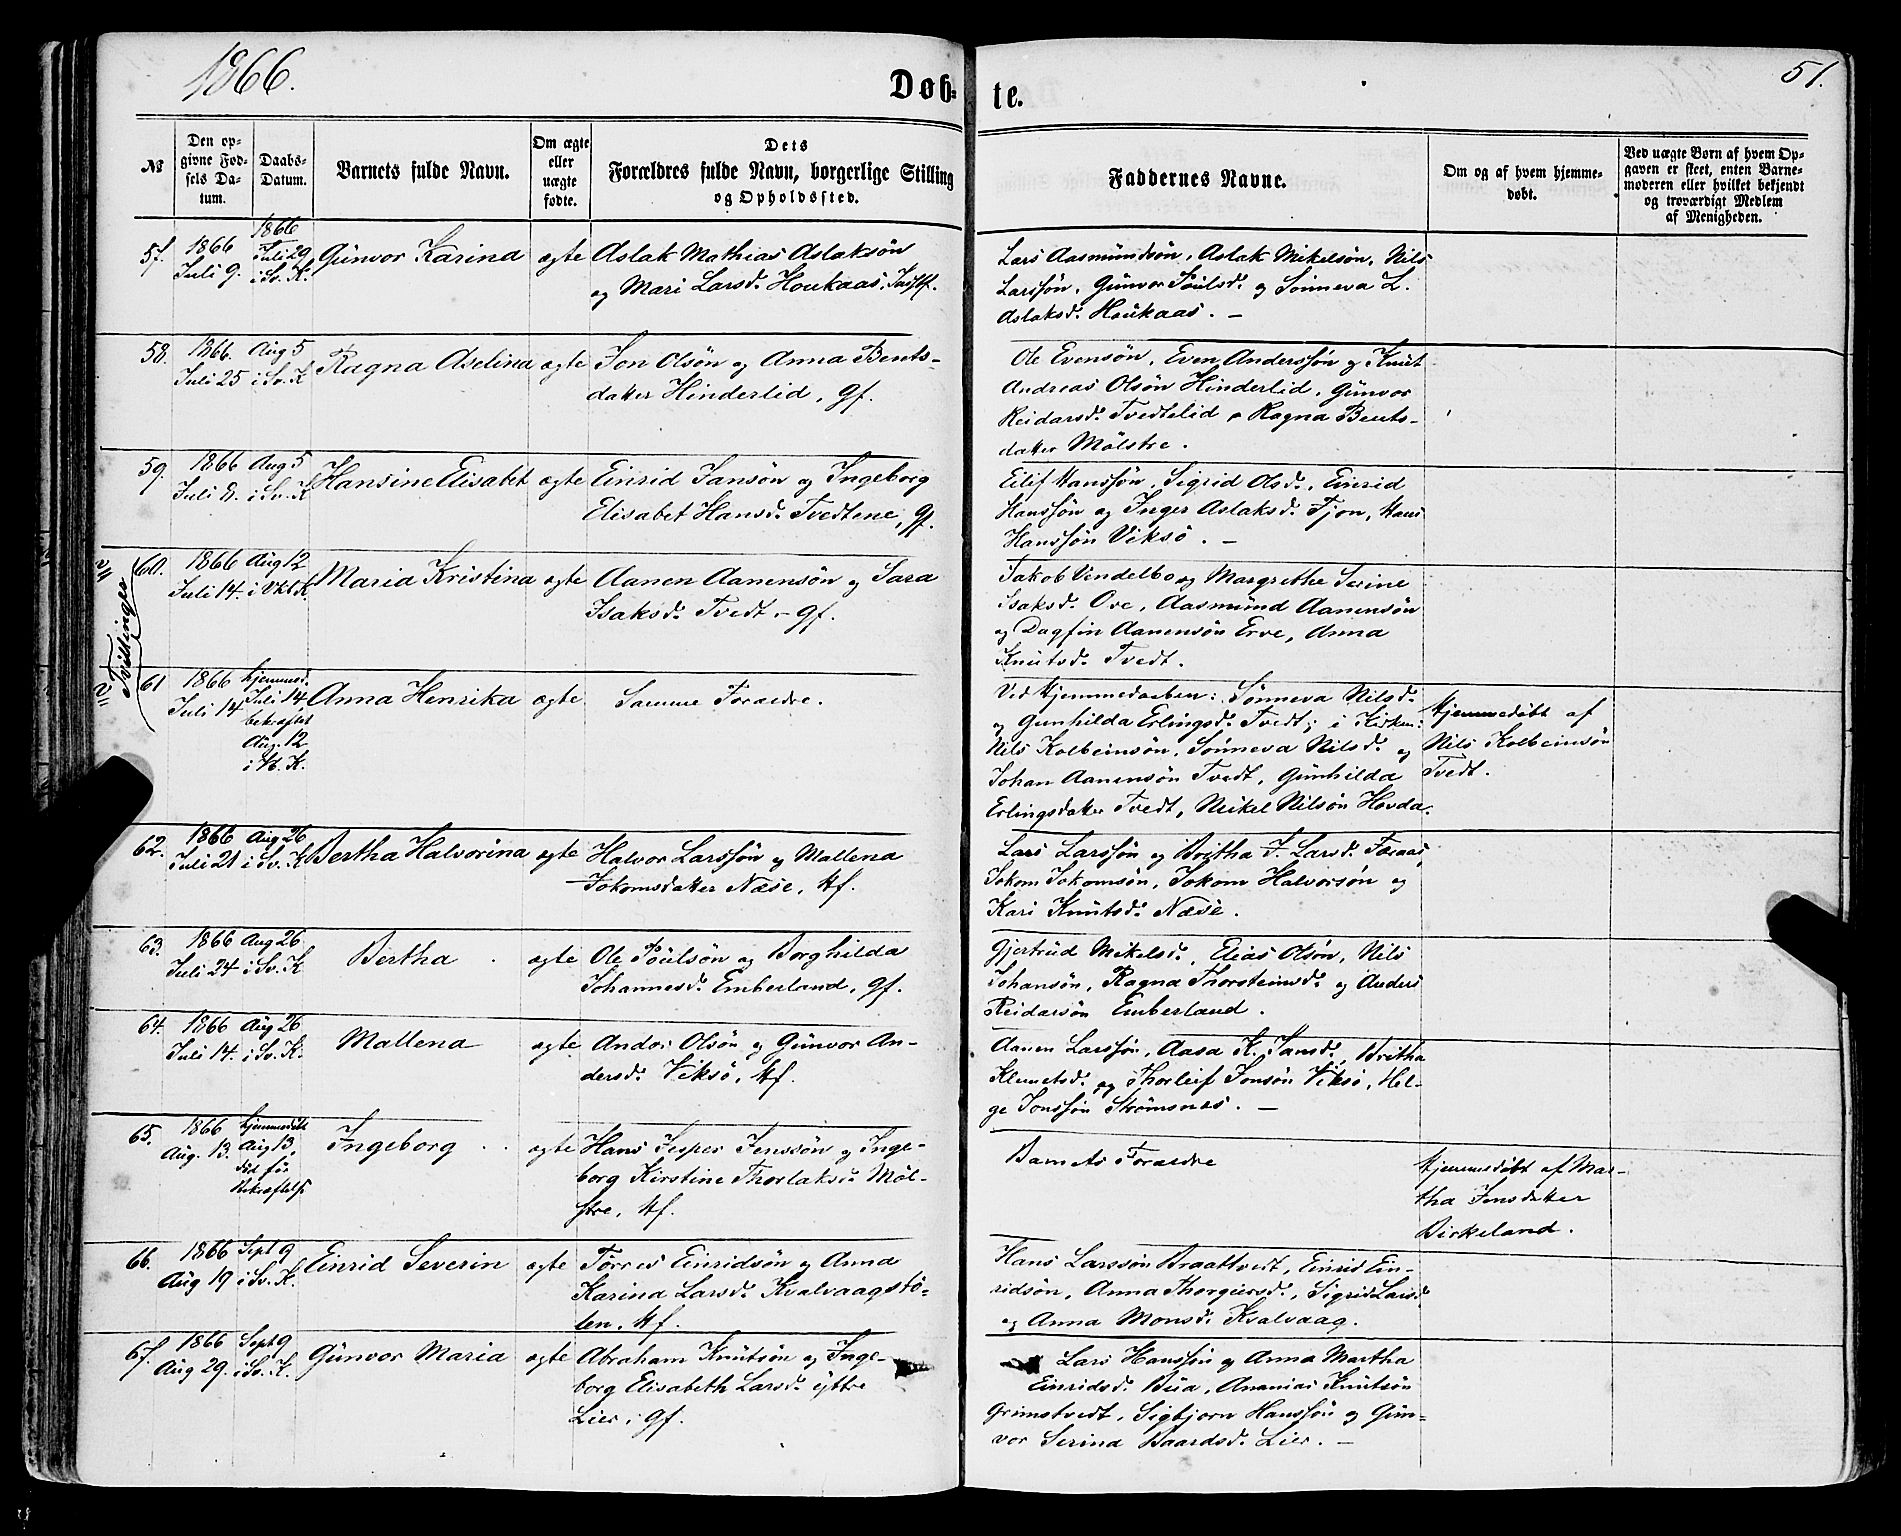 1866.
Døb-
te.
51.
№
Den op-
givne Fød-
sels Da-
tum.
Daabs-
Datum.
Barnets fulde Navn.
Om ægte
eller
uægte
fødte.
Dets
Forældres fulde Navn, borgerlige Stilling
og Opholdssted.
Faddernes Navne.
Om og af hvem hjemme-
døbt.
Ved uægte Børn af hvem Op-
gaven er skeet, enten Barne-
moderen eller hvilket bekjendt
og troværdigt Medlem
af Menigheden.
57.
1866
Juli 9.
1866
Juli 29
i Sv. K.
Gunvor Karina
ægte
Aslak Mathias Aslaksøn
og Mari Larsd. Houkaas,
Lars Aasmundsøn, Aslak Mikelsøn, Nils
Larssøn, Gunvor Poulsd. og Sønneva L.
Aslaksd. Houkaas. –
58.
1866.
Juli 25
Aug 5
i Sv. K
Ragna Aselina
ægte
Jon Olsøn og Anna Bents-
datter Hinderlid, Gf.
Ole Evensøn, Even Anderssøn og Knut
Andreas Olsøn Hinderlid, Gunvor
Reidarsd. Tvedtelid o Ragna Bents-
datter Mølstre.
59.
1866
Juli 8.
Aug 5
i Sv. K
Hansine Elisabet
ægte
Einrid Jansøn og Ingeborg
Elisabet Hansd. Tvedtene, Gf.
Eilif Hanssøn, Sigrid Olsd., Einrid
Hanssøn og Inger Aslaksd. Fjon, Hans
Hanssøn Viksø. –
Tvillinger
60.
1866
Juli 14.
Aug 12
i Vkl K.
Maria Kristina
ægte
Aanen Aanensøn og Sara
Isaksd. Tvedt – Gf.
Jakob Vendelbo og Margrethe Serine
Isaksd. Ove, Aasmund Aanensøn
og Dagfin Aanensøn Erve, Anna
Knutsd. Tvedt.
61
1866
Juli 14
hjemmed.
Juli 14,
bekræftet
Aug. 12
i K.
Anna Henrika
ægte
Samme Forældre.
Ved Hjemmedaaben: Sønneva Nilsd.
og Gunhilda Erlingsd. Tvedt; i Kirken:
Nils Kolbeinsøn, Sønneva Nilsd. og
Johan Aanensøn Tvedt, Gunhilda
Erlingsdatter Tvedt, Mikel Nilsøn Hovda.
Hjemmedøbt af
Nils Kolbeinsøn
Tvedt.
62.
1866
Juli 21
Aug 26
i Sv. K
Bertha Halvorina
ægte
Halvor Larssøn og Mallena
Jokomsdatter Næse, Hf.
Lars Larssøn og Britha J. Larsd. Foraas,
Jokom Jokomsøn, Jokom Halvorsøn og
Kari Knutsd. Næse.
63.
1866
Juli 24
Aug 26
i Sv. K
Bertha
ægte
Ole Poulsøn og Borghilda
Johannesd. Emberland, Gf.
Gjertrud Mikelsd., Elias Olsøn, Nils
Johansøn, Ragna Thorsteinsd. og Anders
Reidarsøn Emberland.
64.
1866
Juli 14.
Aug 26
i Sv. K.
Mallena
ægte
Andor Olsøn og Gunvor An-
dersd. Viksø, Hf.
Aanen Larssøn, Aasa K. Jansd., Britha
Klemetsd. og Thorleif Jonsøn Viksø, Hel-
ge Jonssøn Strømsnes. –
65.
1866
Aug. 13.
hjemmedøbt
Aug 13,
død før
Bekræftelse
Ingeborg
ægte
Hans Jesper Jenssøn og Inge-
borg Kirstine Thorlaksd. Møl-
stre, Hf.
Barnets Forældre
Hjemmedøbt af Mar-
tha Jensdatter
Birkeland.
66.
1866
Aug 19
Sept 9
i Sv. K.
Einrid Severin
ægte
Tørres Einridsøn og Anna
Karina Larsd. Kvalvaagstø-
len, Hf.
Hans Larssøn Braattvedt, Einrid Ein-
ridsøn, Anna Thorgiersd., Sigrid Larsd.
og Anna Monsd. Kvalvaag.
67.
1866
Aug 29.
Sept 9
i Sv. K.
Gunvor Maria
ægte
Abraham Knutsøn og Inge-
borg Elisabeth Larsd. Yttre
Lier, Gf.
Lars Hanssøn og Anna Martha
Einridsd. Bua, Ananias Knutsøn
Grimstvedt, Sigbjørn Hanssøn og Gun-
vor Serina Baardsd. Lier. –